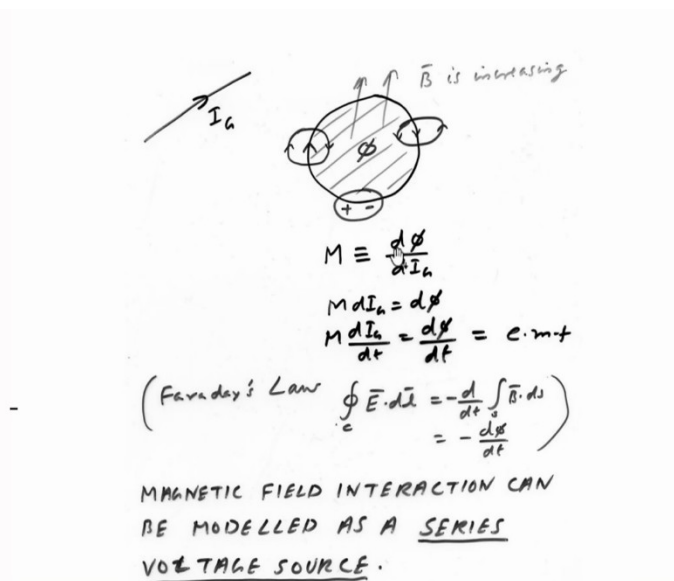 B̄ is increasing
I_G
φ
+ -
M ≡ dφ/dI_G
M dI_G = dφ
M dI_G/dt = dφ/dt = e.m.f
(Faraday's Law ∮_c Ē·dl̄ = -d/dt ∫_s B̄·ds
= - dφ/dt)
MAGNETIC FIELD INTERACTION CAN
BE MODELLED AS A SERIES
VOLTAGE SOURCE.